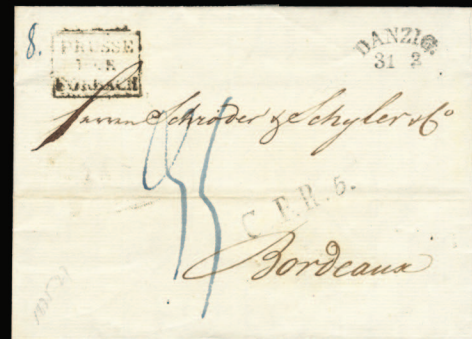 8.
PRUSSE
PAR
FORBACH
DANZIG.
31 3
Schröder & Schyler & Co
C.F.R. 5.
Bordeaux